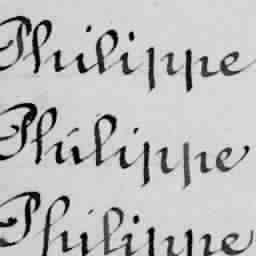 Philippe
Philippe
Philippe